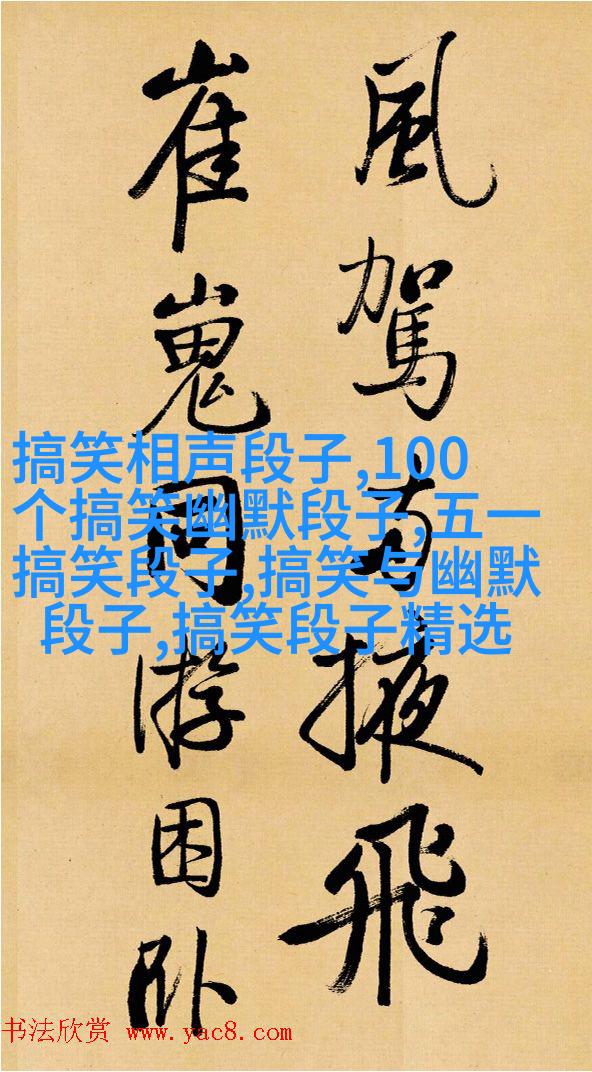 風駕兩掖飛
崔嵬同游困卧
搞笑相声段子,100
个搞笑幽默段子,五一
搞笑段子,搞笑与幽默
段子,搞笑段子精选
书法欣赏 www.yac8.com